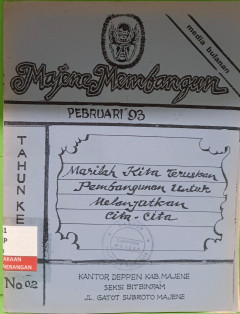 media bulanan
Majene Membangun
PEBRUARI '93
TAHUN KE
Marilah Kita Teruskan
Pembangunan Untuk
Melanjutkan
Cita-Cita
No 02
KANTOR DEPPEN KAB. MAJENE
SEKSI BITBINPAM
JL. GATOT SUBROTO MAJENE